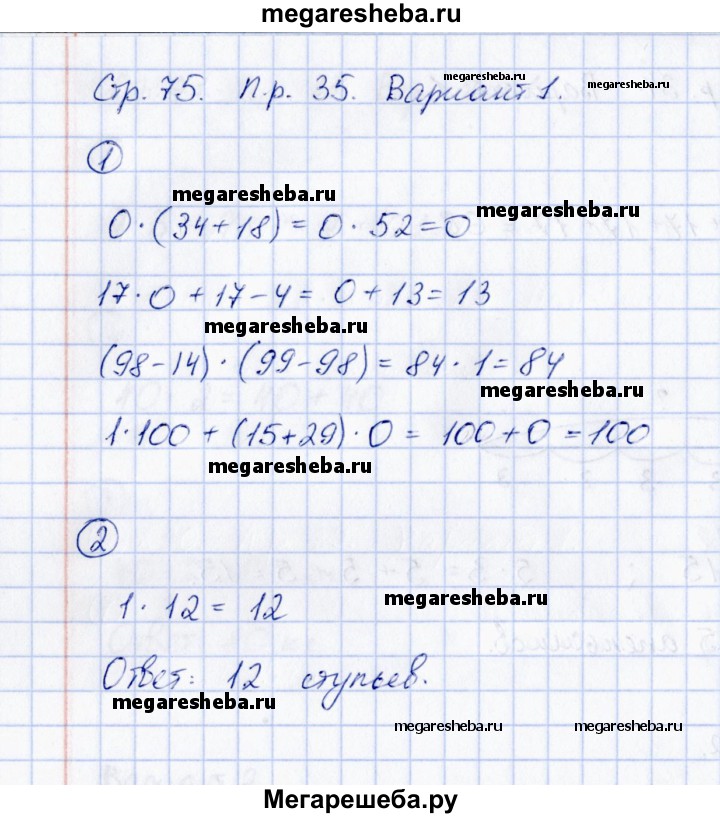 megaresheba.ru
megaresheba.ru
Стр. 75. П.р. 35. Вариант 1.
1
megaresheba.ru
megaresheba.ru
0·(34+18)=0·52=0
17·0+17-4=0+13=13
megaresheba.ru
(98-14)·(99-98)=84·1=84
megaresheba.ru
1·100+(15+29)·0=100+0=100
megaresheba.ru
2
1·12=12
megaresheba.ru
Ответ: 12 стульев.
megaresheba.ru
megaresheba.ru
megaresheba.ru
Мегарешеба.ру